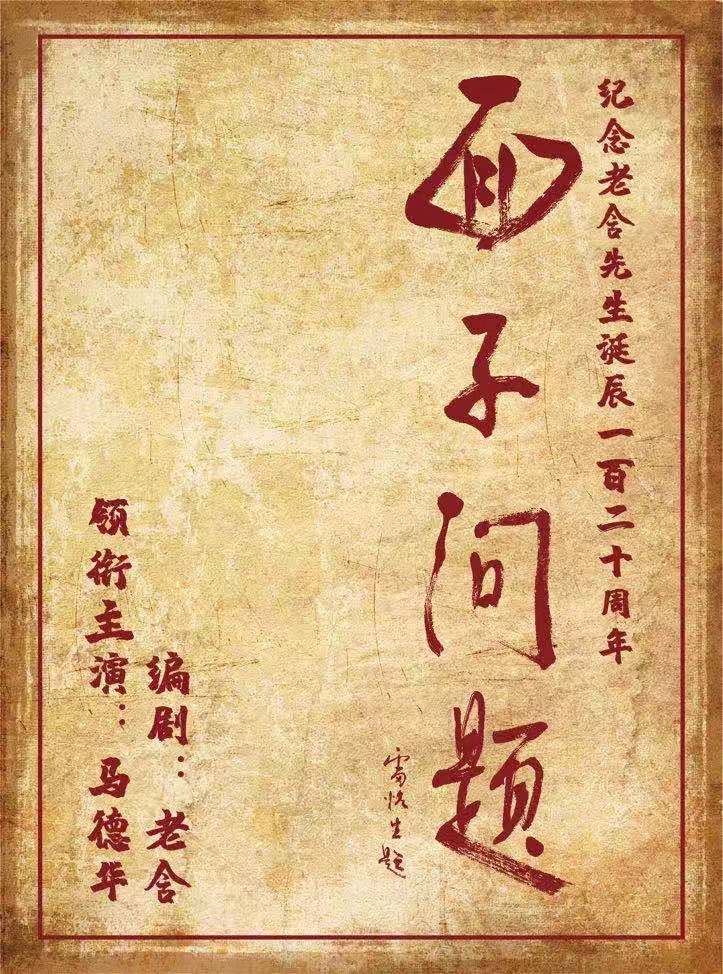 纪念老舍先生诞辰一百二十周年
面子问题
雷恪生题
编剧：老舍
领衔主演：马德华